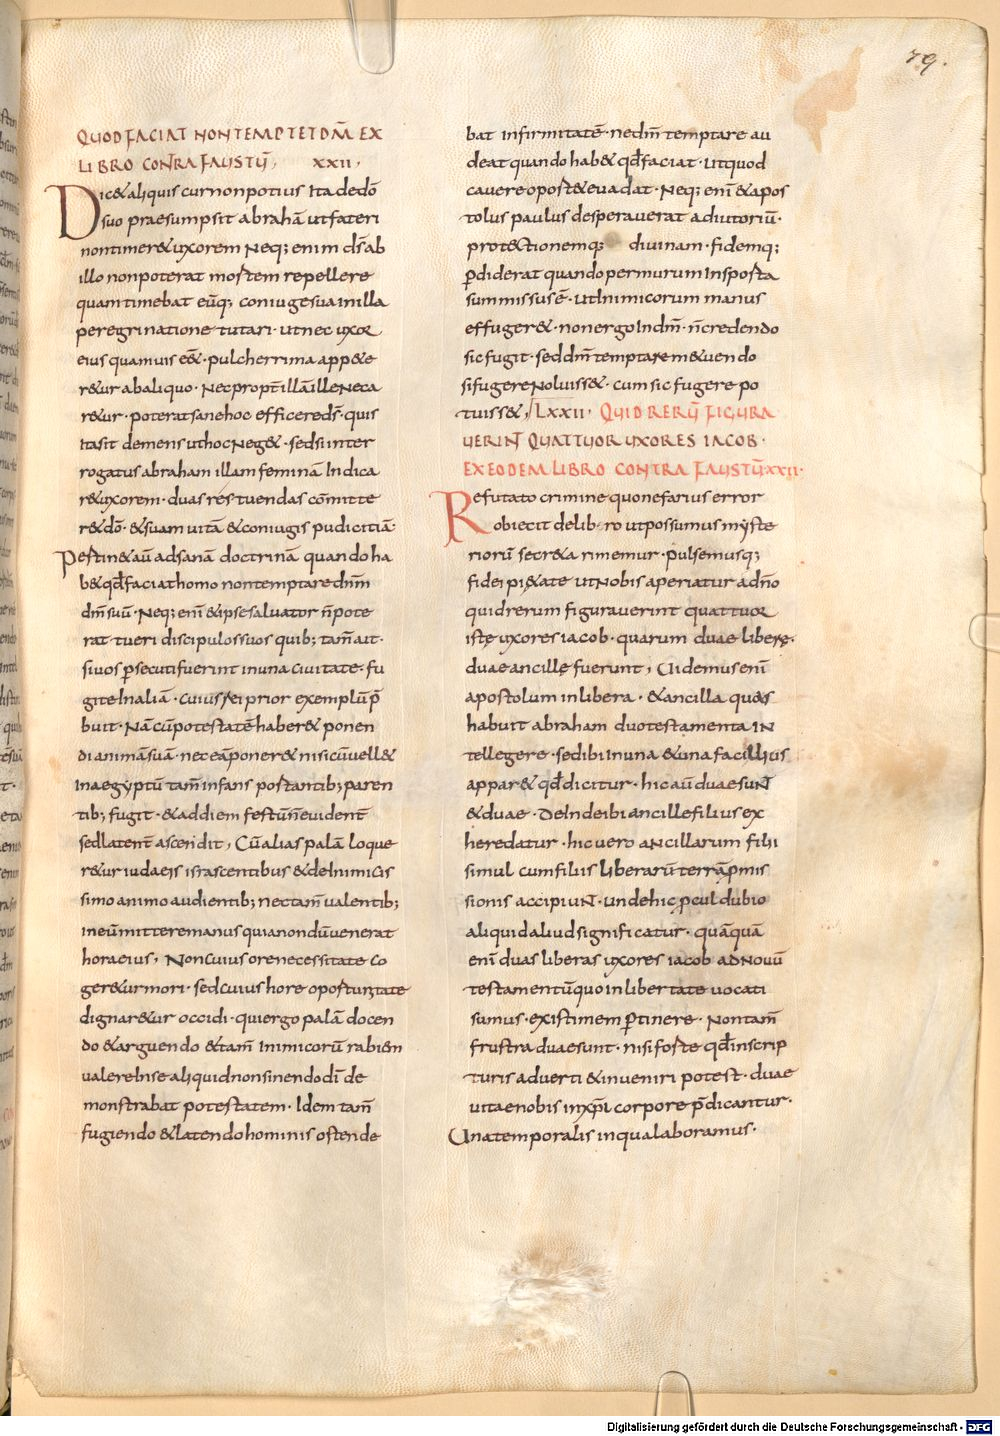 79.
QUOD FACIAT NON TEMPTET DM̄ EX
LIBRO CONTRA FAUSTŪ, XXII.
Dic& aliquis cur non potius ita dedō
suo praesumpsit abrahā ut fateri
non timer& uxorem Neq; enim d̄s ab
illo non poterat mortem repellere
quam timebat eūq; coniuge sua in illa
peregrinatione tutari. ut nec uxor
eius quamuis eēt. pulcherrima app&e
r&ur ab aliquo. Nec propt̄ illā ille Neca
r&ur. poterat sane hoc efficere d̄s. quis
ita sit demens ut hoc Neg&. sed si inter
rogatus abraham illam feminā Indica
r& uxorem. duas res tuendas cōmitte
r& dō. & suam uitā & coniugis pudicitiā.
Pertin& aū ad sanā doctrinā quando ha
b& qd̄ faciat homo non temptare dn̄m
dm̄ suū. Neq; enī & ipse saluator n̄ pote
rat tueri discipulos suos quib; tam̄ ait.
si uos p̄secuti fuerint in una ciuitate. fu
gite In aliā. cuius rei prior exemplū p̄
buit. Nā cū potestatē haber& ponen
di animā suā. nec eā poner& nisi cū uell&
In aegyptū tam̄ infans portantib; paren
tib; fugit. & ad diem festū n̄ euident̄
sed latent̄ ascendit, Cū alias palā loque
r&ur iudaeis irascentibus & de Inimicis
simo animo audientib; nec tam̄ ualentib;
in eū mittere manus quia nondū uenerat
hora eius, Non cuius ore necessitate co
ger&ur mori. sed cuius hore oportunitate
dignar&ur occidi. qui ergo palā docen
do & arguendo & tam̄ Inimicorū rabiem
ualere In se aliquid non sinendo di de
monstrabat potestatem. Idem tam̄
fugiendo & latendo hominis ostende
bat infirmitatē. ne dm̄ temptare au
deat quando hab& qd̄ faciat. ut quod
cauere oport& euadat. Neq; enī & apos
tolus paulus desperauerat adiutoriū.
prot&ctionemq; diuinam. fidemq;
p̄diderat quando per murum In sporta
summissus ē. ut Inimicorum manus
effuger&. non ergo In dm̄. n̄ credendo
sic fugit. sed dm̄ temptarem &uendo
si fugere Noluiss&. cum sic fugere po
tuiss&, LXXII. QUID RERŪ FIGURA
UERINT QUATTUOR UXORES IACOB.
EX EODEM LIBRO CONTRA FAUSTŪ XXII.
Refutato crimine quo nefarius error
obiecit de lib&ro ut possumus myste
riorū secr&a rimemur. pulsemusq;
fidei pi&ate ut Nobis aperiatur a dn̄o
quid rerum figurauerint quattuor
istę uxores iacob. quarum duae liberę.
duae ancillę fuerunt, Uidemus enī
apostolum in libera. & ancilla quas
habuit abraham duo testamenta IN
tellegere. sed ibi In una & una facillius
appar& qd̄ dicitur. hic aū duae suNT
& duae. DeInde ibi ancille filius ex
heredatur. hic uero aNcillarum filii
simul cum filiis liberarū terrā p̄mis
sionis accipiuNT. unde hic p̄cul dubio
aliquid aliud significatur. quāquā
enī duas liberas uxores iacob ad Nouū
testamentū quo in libertate uocati
sumus. existimem p̄tinere. Non tam̄
frustra duae sunt. nisi forte qd̄ in scrip
turis aduerti & inueniri potest. duae
uitae nobis in xp̄i corpore p̄dicantur.
Una temporalis in qua laboramus.
Digitalisierung gefördert durch die Deutsche Forschungsgemeinschaft - DFG